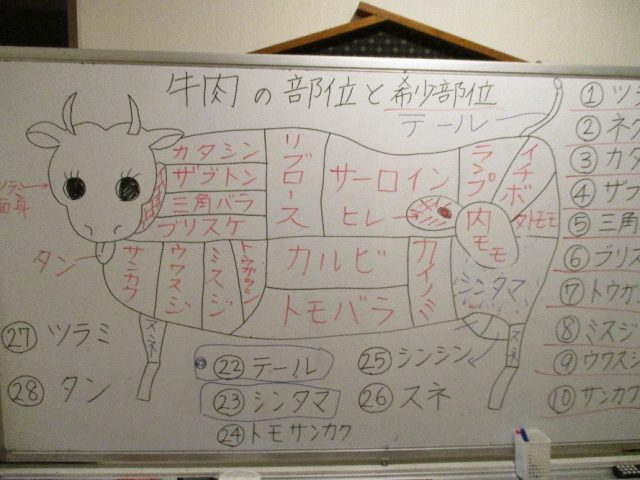 牛肉の部位と希少部位
テール
カタシン
ザブトン
三角バラ
ブリスケ
リブロース
サーロイン
ヒレ
ランプ
イチボ
内モモ
外モモ
ツラミ
タン
サンカク
ウワスジ
ミスジ
トウガラシ
カルビ
トモバラ
カイノミ
シンタマ
スネ
スネ
㉗ ツラミ
㉘ タン
㉒ テール
㉓ シンタマ
㉔ トモサンカク
㉕ シンシン
㉖ スネ
① ツラ
② ネク
③ カタ
④ ザブ
⑤ 三角
⑥ ブリス
⑦ トウガ
⑧ ミスジ
⑨ ウワスジ
⑩ サンカク